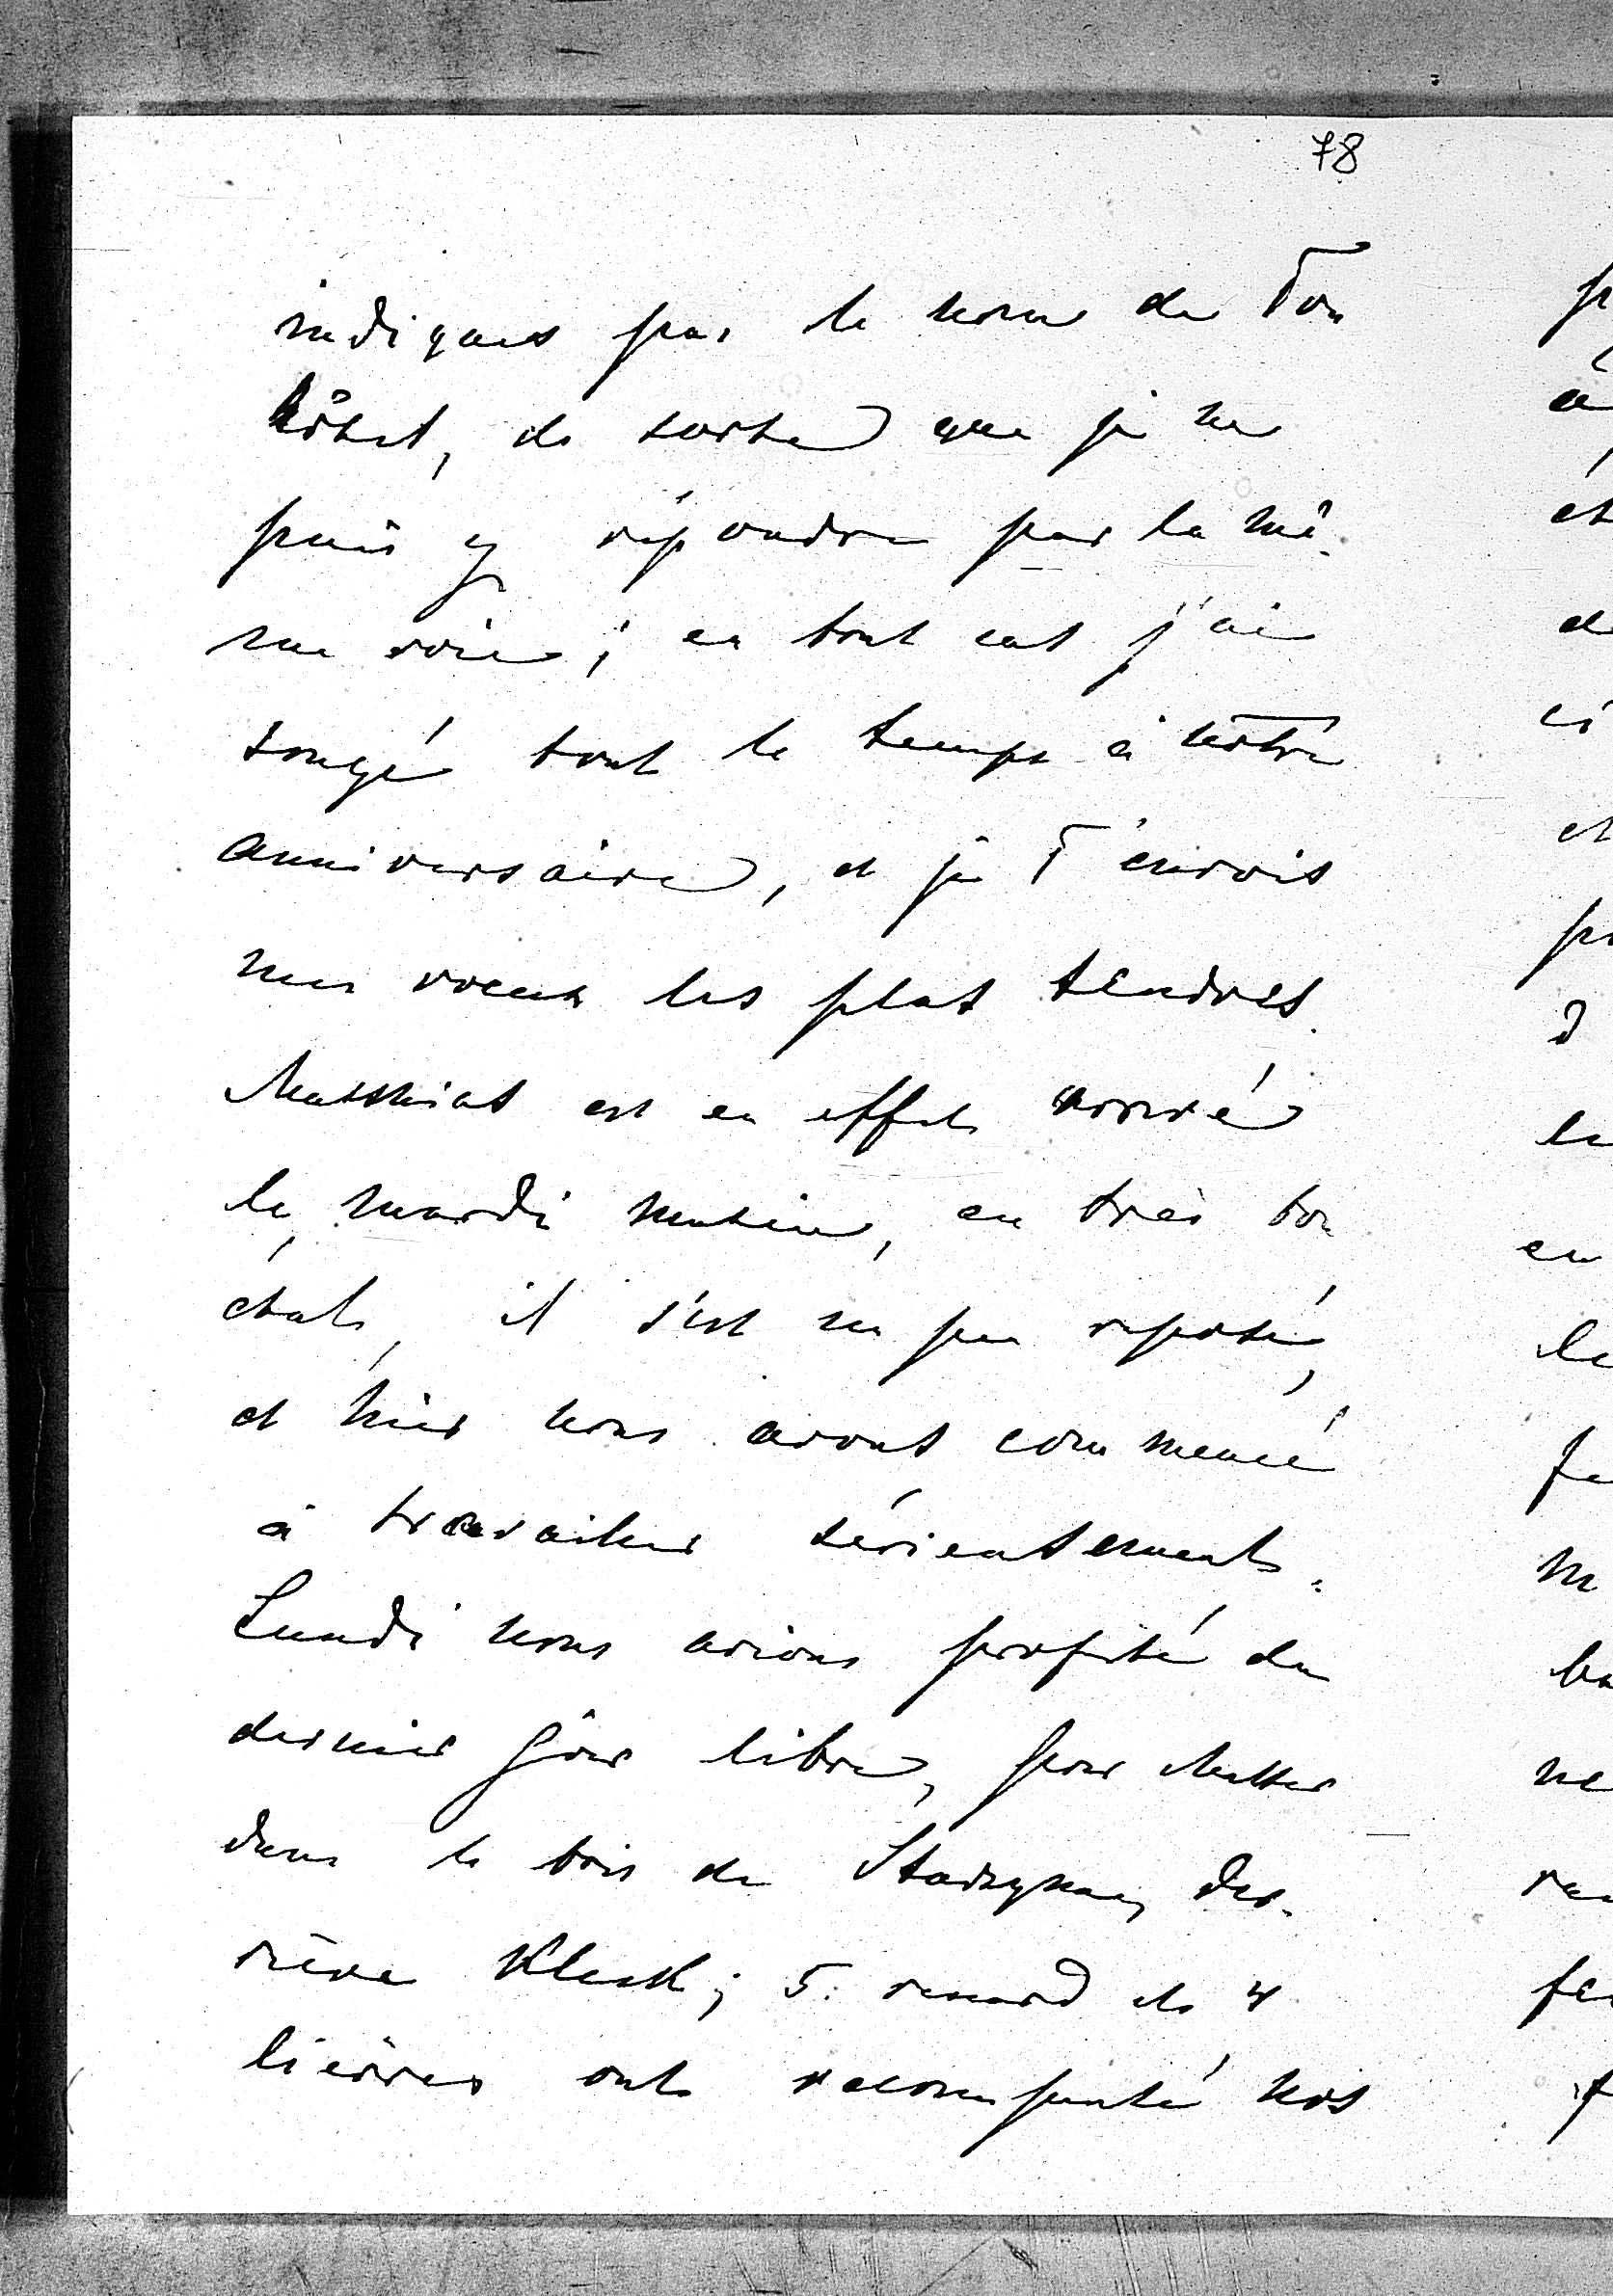 78
indiques pas le nom de Ton
hôtel, de sorte que je ne
puis y répondre par la mê-
me voie; en tout cas j'ai
songé tout le temps à nôtre
anniversaire, et je T'envois
mes voeux les plus tendres.
Matthias est en effet arrivé
le mardi matin, en très bon
état, il s'est un peu reposé,
et hier nous avons commencé
à travailler sérieusement.
Lundi nous avions profité du
dernier jour libre, pour chasser
dans le bois de Starzyna, der-
rière Kleck; 5 renard et 4
lièvres ont recompensé nos